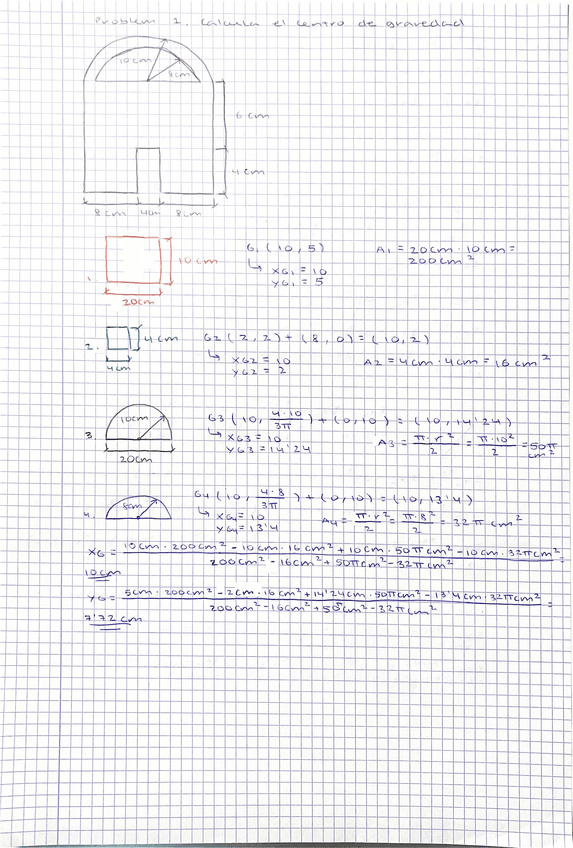 Problem 1. Calcula el centro de gravedad
10cm
8cm
6cm
4cm
8cm 4cm 8cm
1.
10cm
20cm
G1 (10, 5)
↳ XG1 = 10
YG1 = 5
A1 = 20cm · 10cm =
200cm²
2.
4cm
4cm
G2 (2, 2) + (8, 0) = (10, 2)
↳ XG2 = 10
YG2 = 2
A2 = 4cm · 4cm = 16cm²
3.
10cm
20cm
G3 (10, 4·10/3π) + (0, 10) = (10, 14'24)
↳ XG3 = 10
YG3 = 14'24
A3 = π·r²/2 = π·10²/2 = 50π cm²
4.
8cm
G4 (10, 4·8/3π) + (0, 10) = (10, 13'4)
↳ XG4 = 10
YG4 = 13'4
A4 = π·r²/2 = π·8²/2 = 32π cm²
XG = 10cm · 200cm² - 10cm · 16cm² + 10cm · 50πcm² - 10cm · 32πcm² / 200cm² - 16cm² + 50πcm² - 32πcm² =
10cm
YG = 5cm · 200cm² - 2cm · 16cm² + 14'24cm · 50πcm² - 13'4cm · 32πcm² / 200cm² - 16cm² + 50cm² - 32πcm² =
7'72 cm